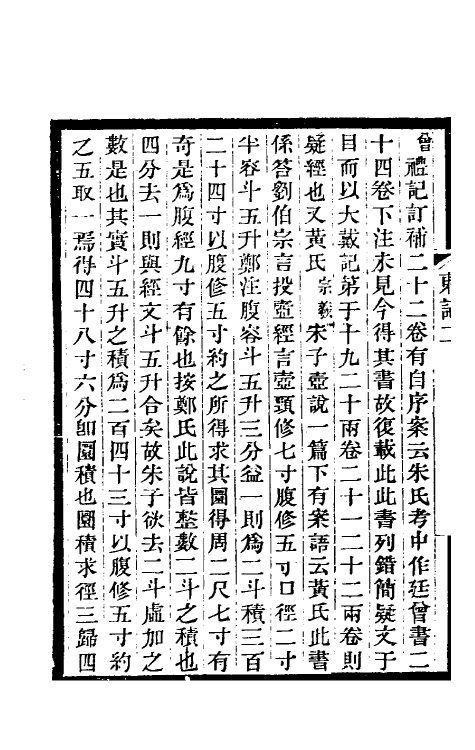 曾禮記訂補二十二卷有自序案云朱氏考中作廷曾書二
十四卷下注未見今得其書故復載此此書列錯簡疑文于
目而以大戴記第于十九二十兩卷二十一二十二兩卷則
疑經也又黃氏宗羲朱子壺說一篇下有案語云黃氏此書
係答劉伯宗言投壺經言壺頸修七寸腹修五寸口徑二寸
半容斗五升鄭注腹容斗五升三分益一則為二斗積三百
二十四寸以腹修五寸約之所得求其圜得周二尺七寸有
奇是爲腹經九寸有餘也按鄭氏此說皆整數二斗之積也
四分去一則與經文斗五升合矣故朱子欲去二斗虛加之
數是也其實斗五升之積爲二百四十三寸以腹修五寸約
之五取一焉得四十八寸六分卽圜積也圜積求徑三歸四